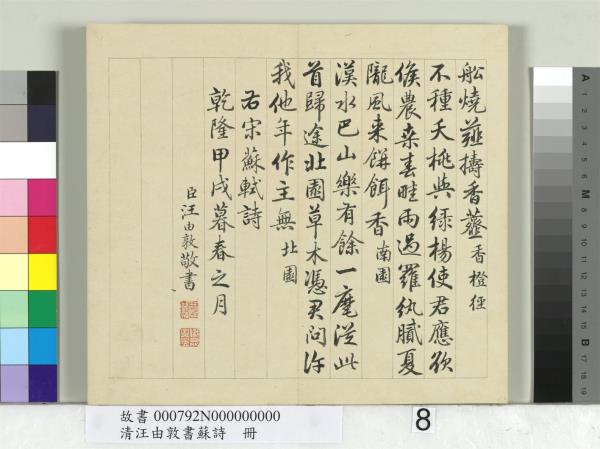 舩燒薤擣香虀香橙徑
不種夭桃與綠楊使君應欲
候農桑春畦雨過羅紈膩夏
隴風来餅餌香南園
漢水巴山樂有餘一麾從此
首歸途北園草木憑君問許
我他年作主無北園
右宋蘇軾詩
乾隆甲戌暮春之月
臣汪由敦敬書
故書 000792N000000000
清汪由敦書蘇詩 冊
8
A 1 2 3 4 5 6 M 8 9 10 11 12 13 14 15 B 17 18 19